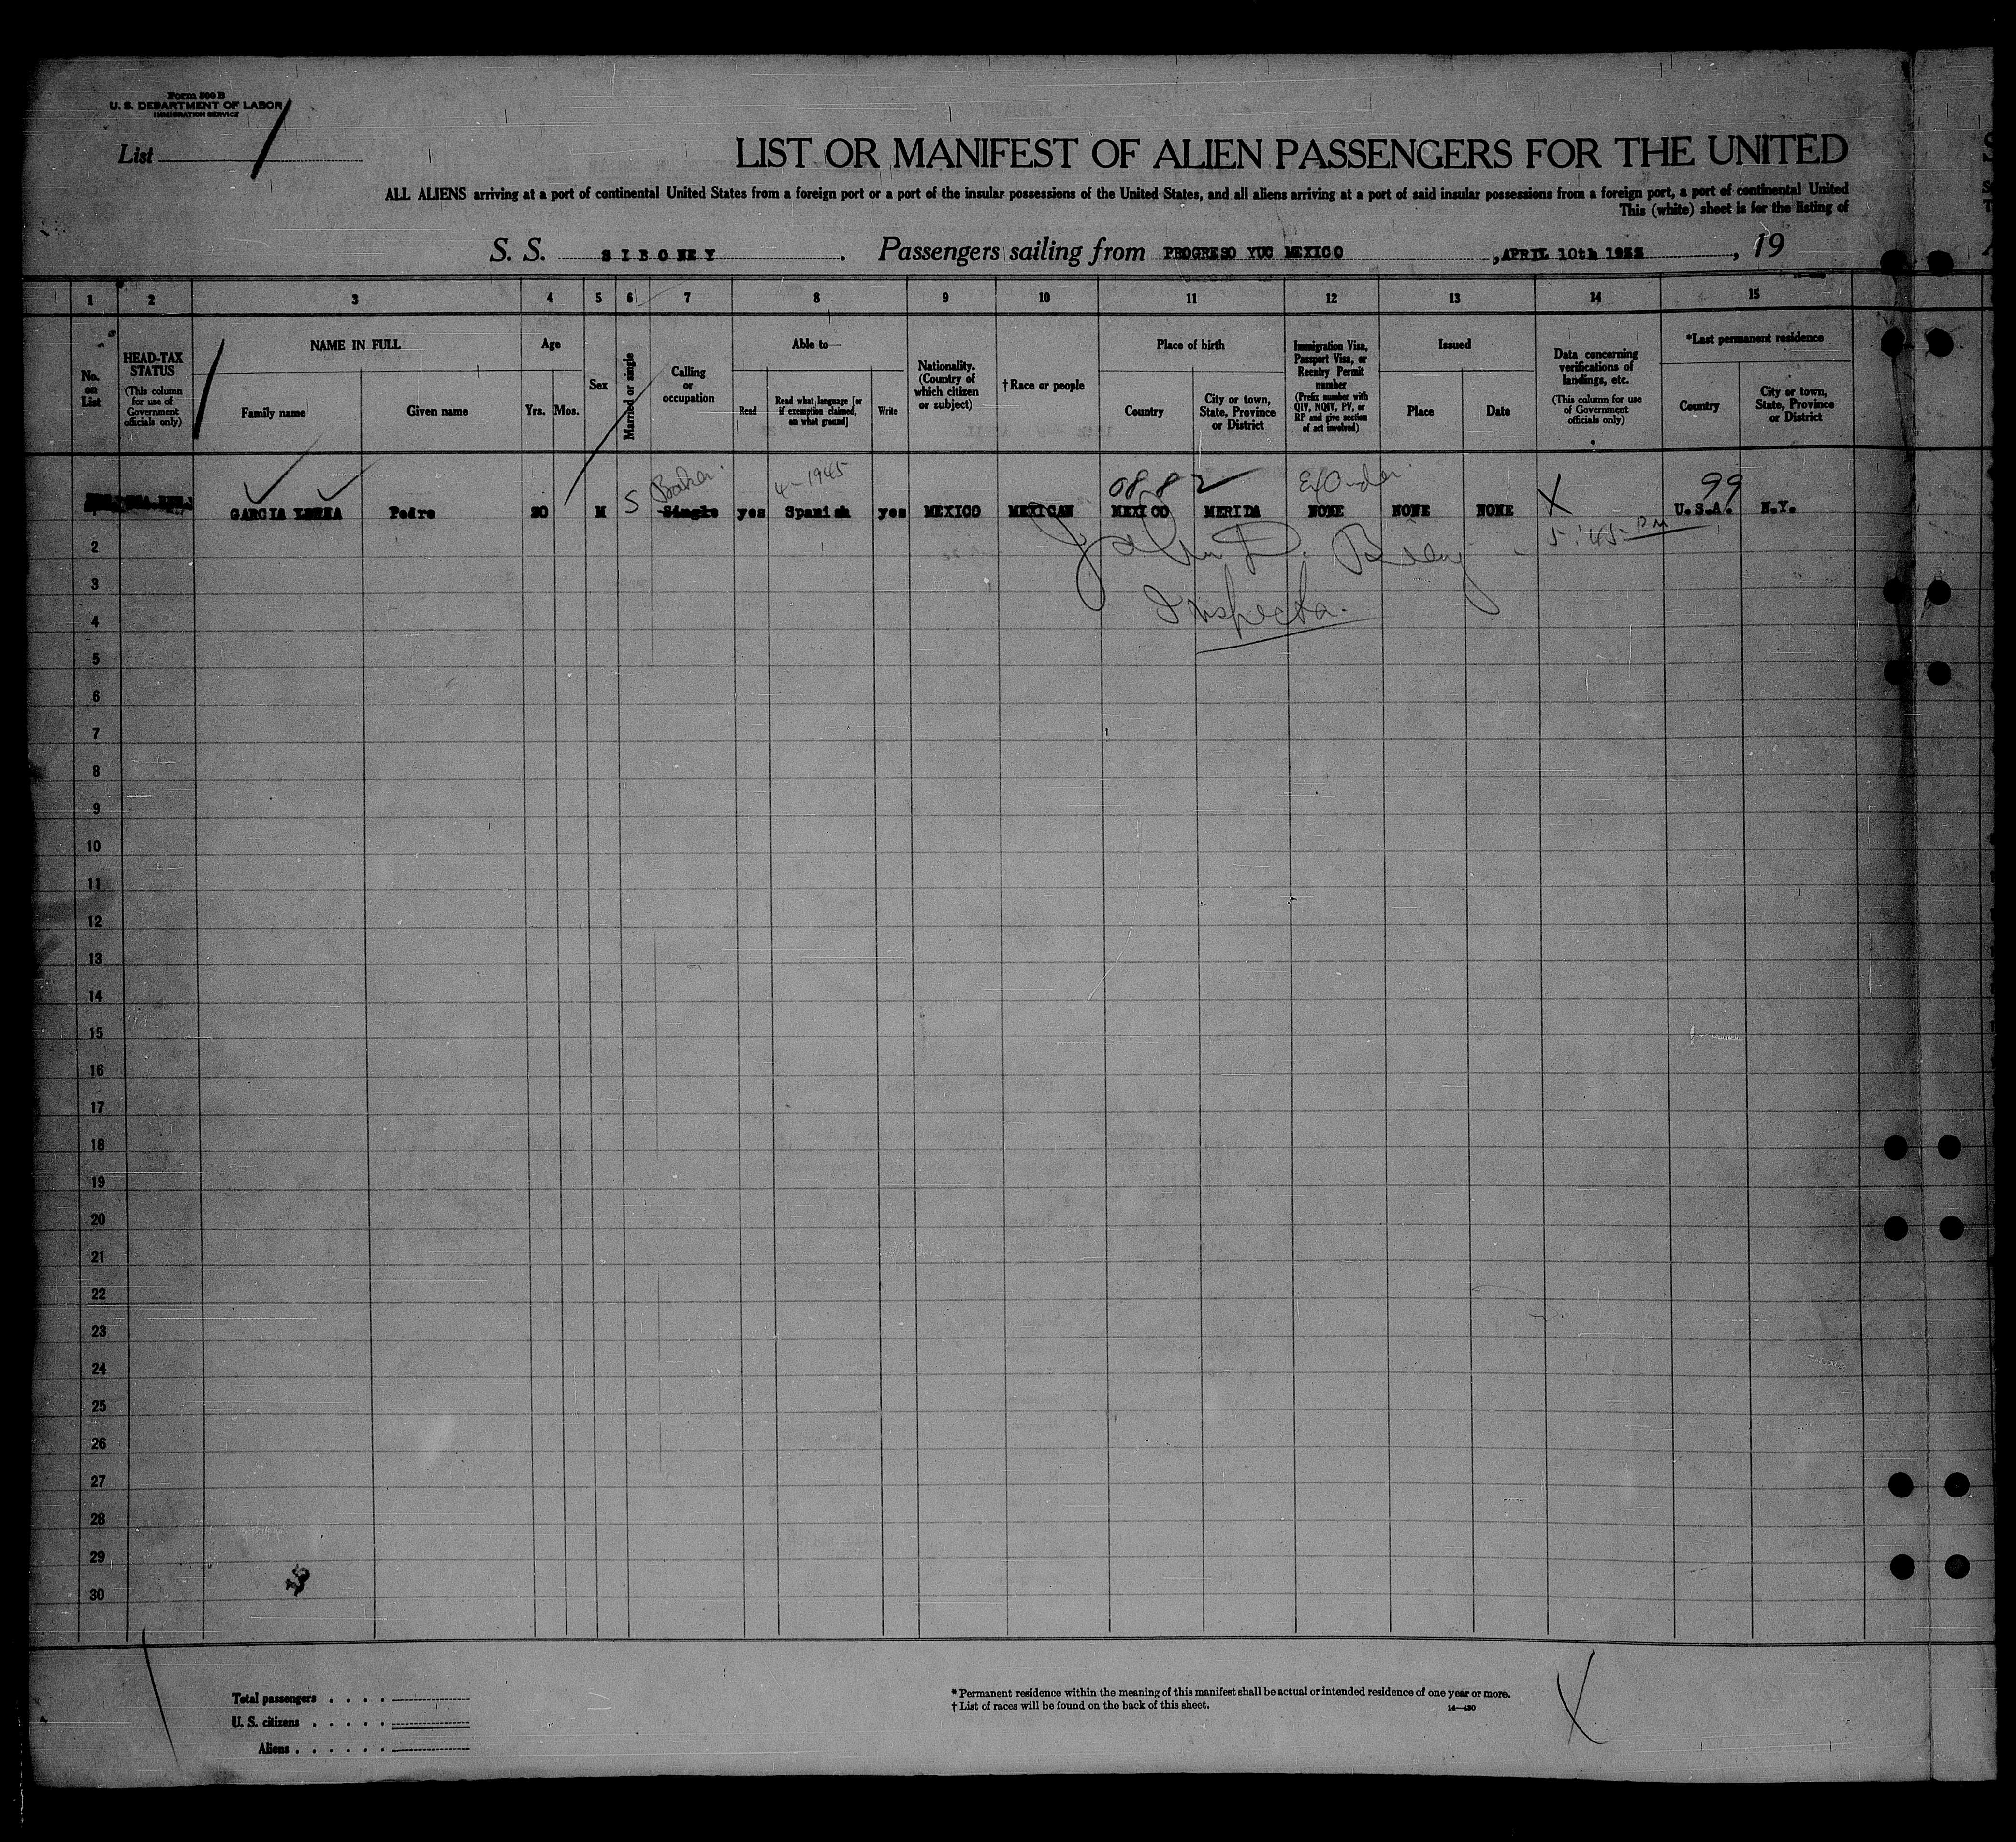 Form 500 B
U. S. DEPARTMENT OF LABOR
IMMIGRATION SERVICE
List 1
LIST OR MANIFEST OF ALIEN PASSENGERS FOR THE UNITED
ALL ALIENS arriving at a port of continental United States from a foreign port or a port of the insular possessions of the United States, and all aliens arriving at a port of said insular possessions from a foreign port, a port of continental United
This (white) sheet is for the listing of
S. S. SIBONEY. Passengers sailing from PROGRESO YUC MEXICO, APRIL 10th 1933, 19
1 2 3 4 5 6 7 8 9 10 11 12 13 14 15
No. on List
HEAD-TAX STATUS (This column for use of Government officials only)
NAME IN FULL
Family name
Given name
Age
Yrs. Mos.
Sex
Married or single
Calling or occupation
Able to—
Read
Read what language [or if exemption claimed, on what ground]
Write
Nationality. (Country of which citizen or subject)
†Race or people
Place of birth
Country
City or town, State, Province or District
Immigration Visa, Passport Visa, or Reentry Permit number (Prefix number with QIV, NQIV, PV, or RP and give section of act involved)
Issued
Place
Date
Data concerning verifications of landings, etc. (This column for use of Government officials only)
*Last permanent residence
Country
City or town, State, Province or District
Baker 4-1945 0882 Ex Order 99
GARCIA Pedro 20 M S Single yes Spanish yes MEXICO MEXICAN MEXICO MERIDA NONE NONE NONE X U.S.A. N.Y.
John D. 5:45 PM
Inspector.
2
3
4
5
6
7
8
9
10
11
12
13
14
15
16
17
18
19
20
21
22
23
24
25
26
27
28
29
30
Total passengers . . . .
U. S. citizens . . . . .
Aliens . . . . . .
* Permanent residence within the meaning of this manifest shall be actual or intended residence of one year or more.
† List of races will be found on the back of this sheet.
14—430
X